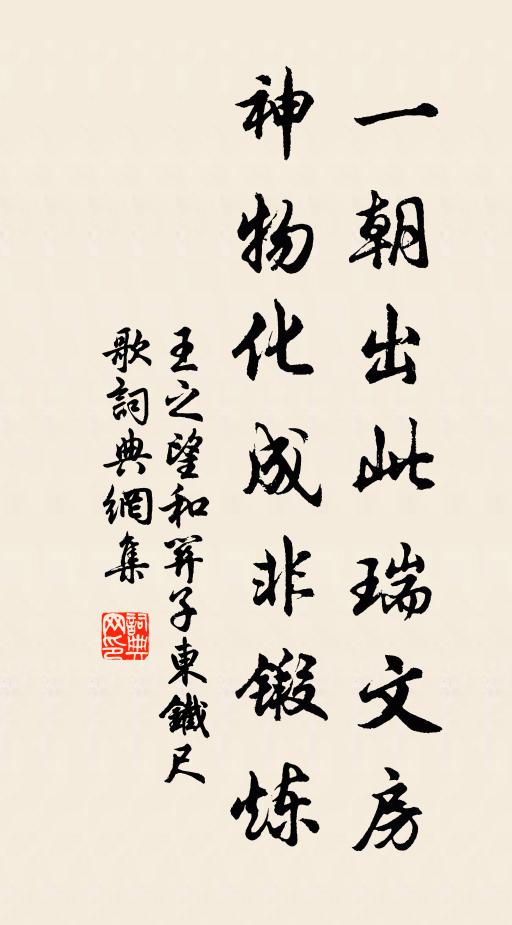 一朝出此瑞文房
神物化成非鍛炼
王之望和笄子東鐵尺
歌詞典網集
詞典
网印